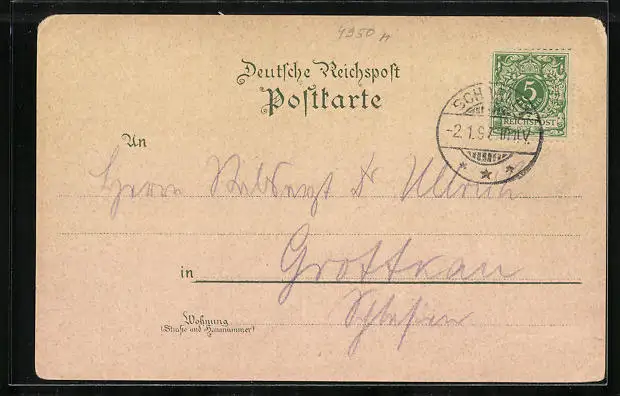 4950
Deutsche Reichspost
Postkarte
5
REICHSPOST
SCH
-2.1.97
An
Herrn Stabsarzt Dr Ullrich
in Grottkau
Schlesien
Wohnung
(Straße und Hausnummer)